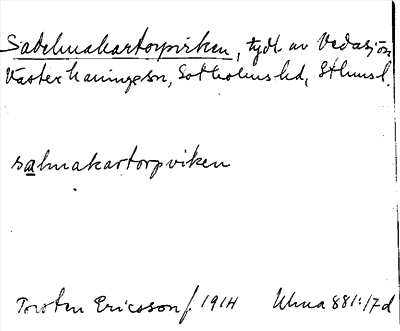 Sadelmakartorpviken, tydl av Vedasjön
Västerhaninge sn, Sotholms hd, Sthmsl.
salmakartorpviken
Torsten Ericsson f. 1914 Ulma 881:17d